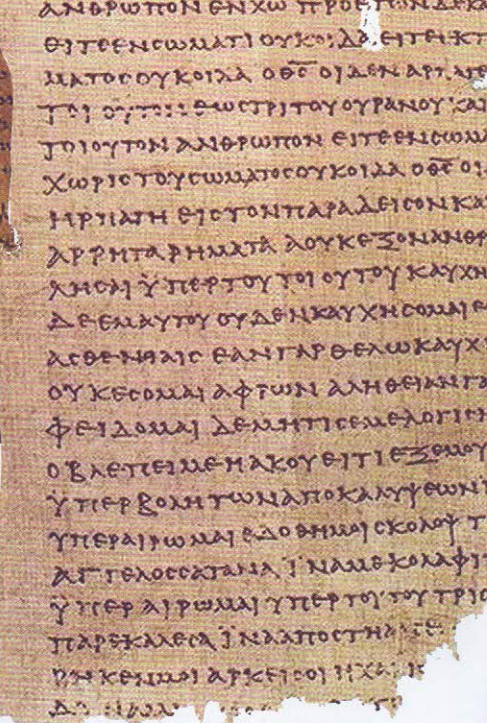 ΑΝΘΡΩΠΟΝ ΕΝ ΧΩ ΠΡΟ ΕΤΩΝ ΔΕΚΑ
ΕΙΤΕ ΕΝ ϹΩΜΑΤΙ ΟΥΚ ΟΙΔΑ ΕΙΤΕ ΕΚΤ
ΜΑΤΟϹ ΟΥΚ ΟΙΔΑ Ο Θ̅Ϲ̅ ΟΙΔΕΝ ΑΡΠΑΓΕ
ΤΟΙΟΥΤΟΝ ΕΩϹ ΤΡΙΤΟΥ ΟΥΡΑΝΟΥ ΚΑΙ
ΤΟΙΟΥΤΟΝ ΑΝΘΡΩΠΟΝ ΕΙΤΕ ΕΝ ϹΩΜΑ
ΧΩΡΙϹ ΤΟΥ ϹΩΜΑΤΟϹ ΟΥΚ ΟΙΔΑ Ο Θ̅Ϲ̅ ΟΙ
ΗΡΠΑΓΗ ΕΙϹ ΤΟΝ ΠΑΡΑΔΕΙϹΟΝ ΚΑ
ΑΡΡΗΤΑ ΡΗΜΑΤΑ Α ΟΥΚ ΕΞΟΝ ΑΝΘΡ
ΛΗϹΑΙ ΫΠΕΡ ΤΟΥ ΤΟΙΟΥΤΟΥ ΚΑΥΧΗ
ΔΕ ΕΜΑΥΤΟΥ ΟΥΔΕΝ ΚΑΥΧΗϹΟΜΑΙ Ε
ΑϹΘΕΝΙΑΙϹ ΕΑΝ ΓΑΡ ΘΕΛΩ ΚΑΥΧ
ΟΥΚ ΕϹΟΜΑΙ ΑΦΡΩΝ ΑΛΗΘΕΙΑΝ ΓΑ
ΦΕΙΔΟΜΑΙ ΔΕ ΜΗ ΤΙϹ ΕΜΕ ΛΟΓΙϹΗ
Ο ΒΛΕΠΕΙ ΜΕ Η ΑΚΟΥΕΙ ΤΙ ΕΞ ΕΜΟΥ
ΫΠΕΡΒΟΛΗ ΤΩΝ ΑΠΟΚΑΛΥΨΕΩΝ Ϊ
ΥΠΕΡΑΙΡΩΜΑΙ ΕΔΟΘΗ ΜΟΙ ϹΚΟΛΟΨ Τ
ΑΓΓΕΛΟϹ ϹΑΤΑΝΑ ΪΝΑ ΜΕ ΚΟΛΑΦΙ
ΫΠΕΡΑΙΡΩΜΑΙ ΥΠΕΡ ΤΟΥΤΟΥ ΤΡΙϹ
ΠΑΡΕΚΑΛΕϹΑ ΪΝΑ ΑΠΟϹΤΗ ΑΠ Ε
ΡΗΚΕΝ ΜΟΙ ΑΡΚΕΙ ϹΟΙ Η ΧΑΡΙ